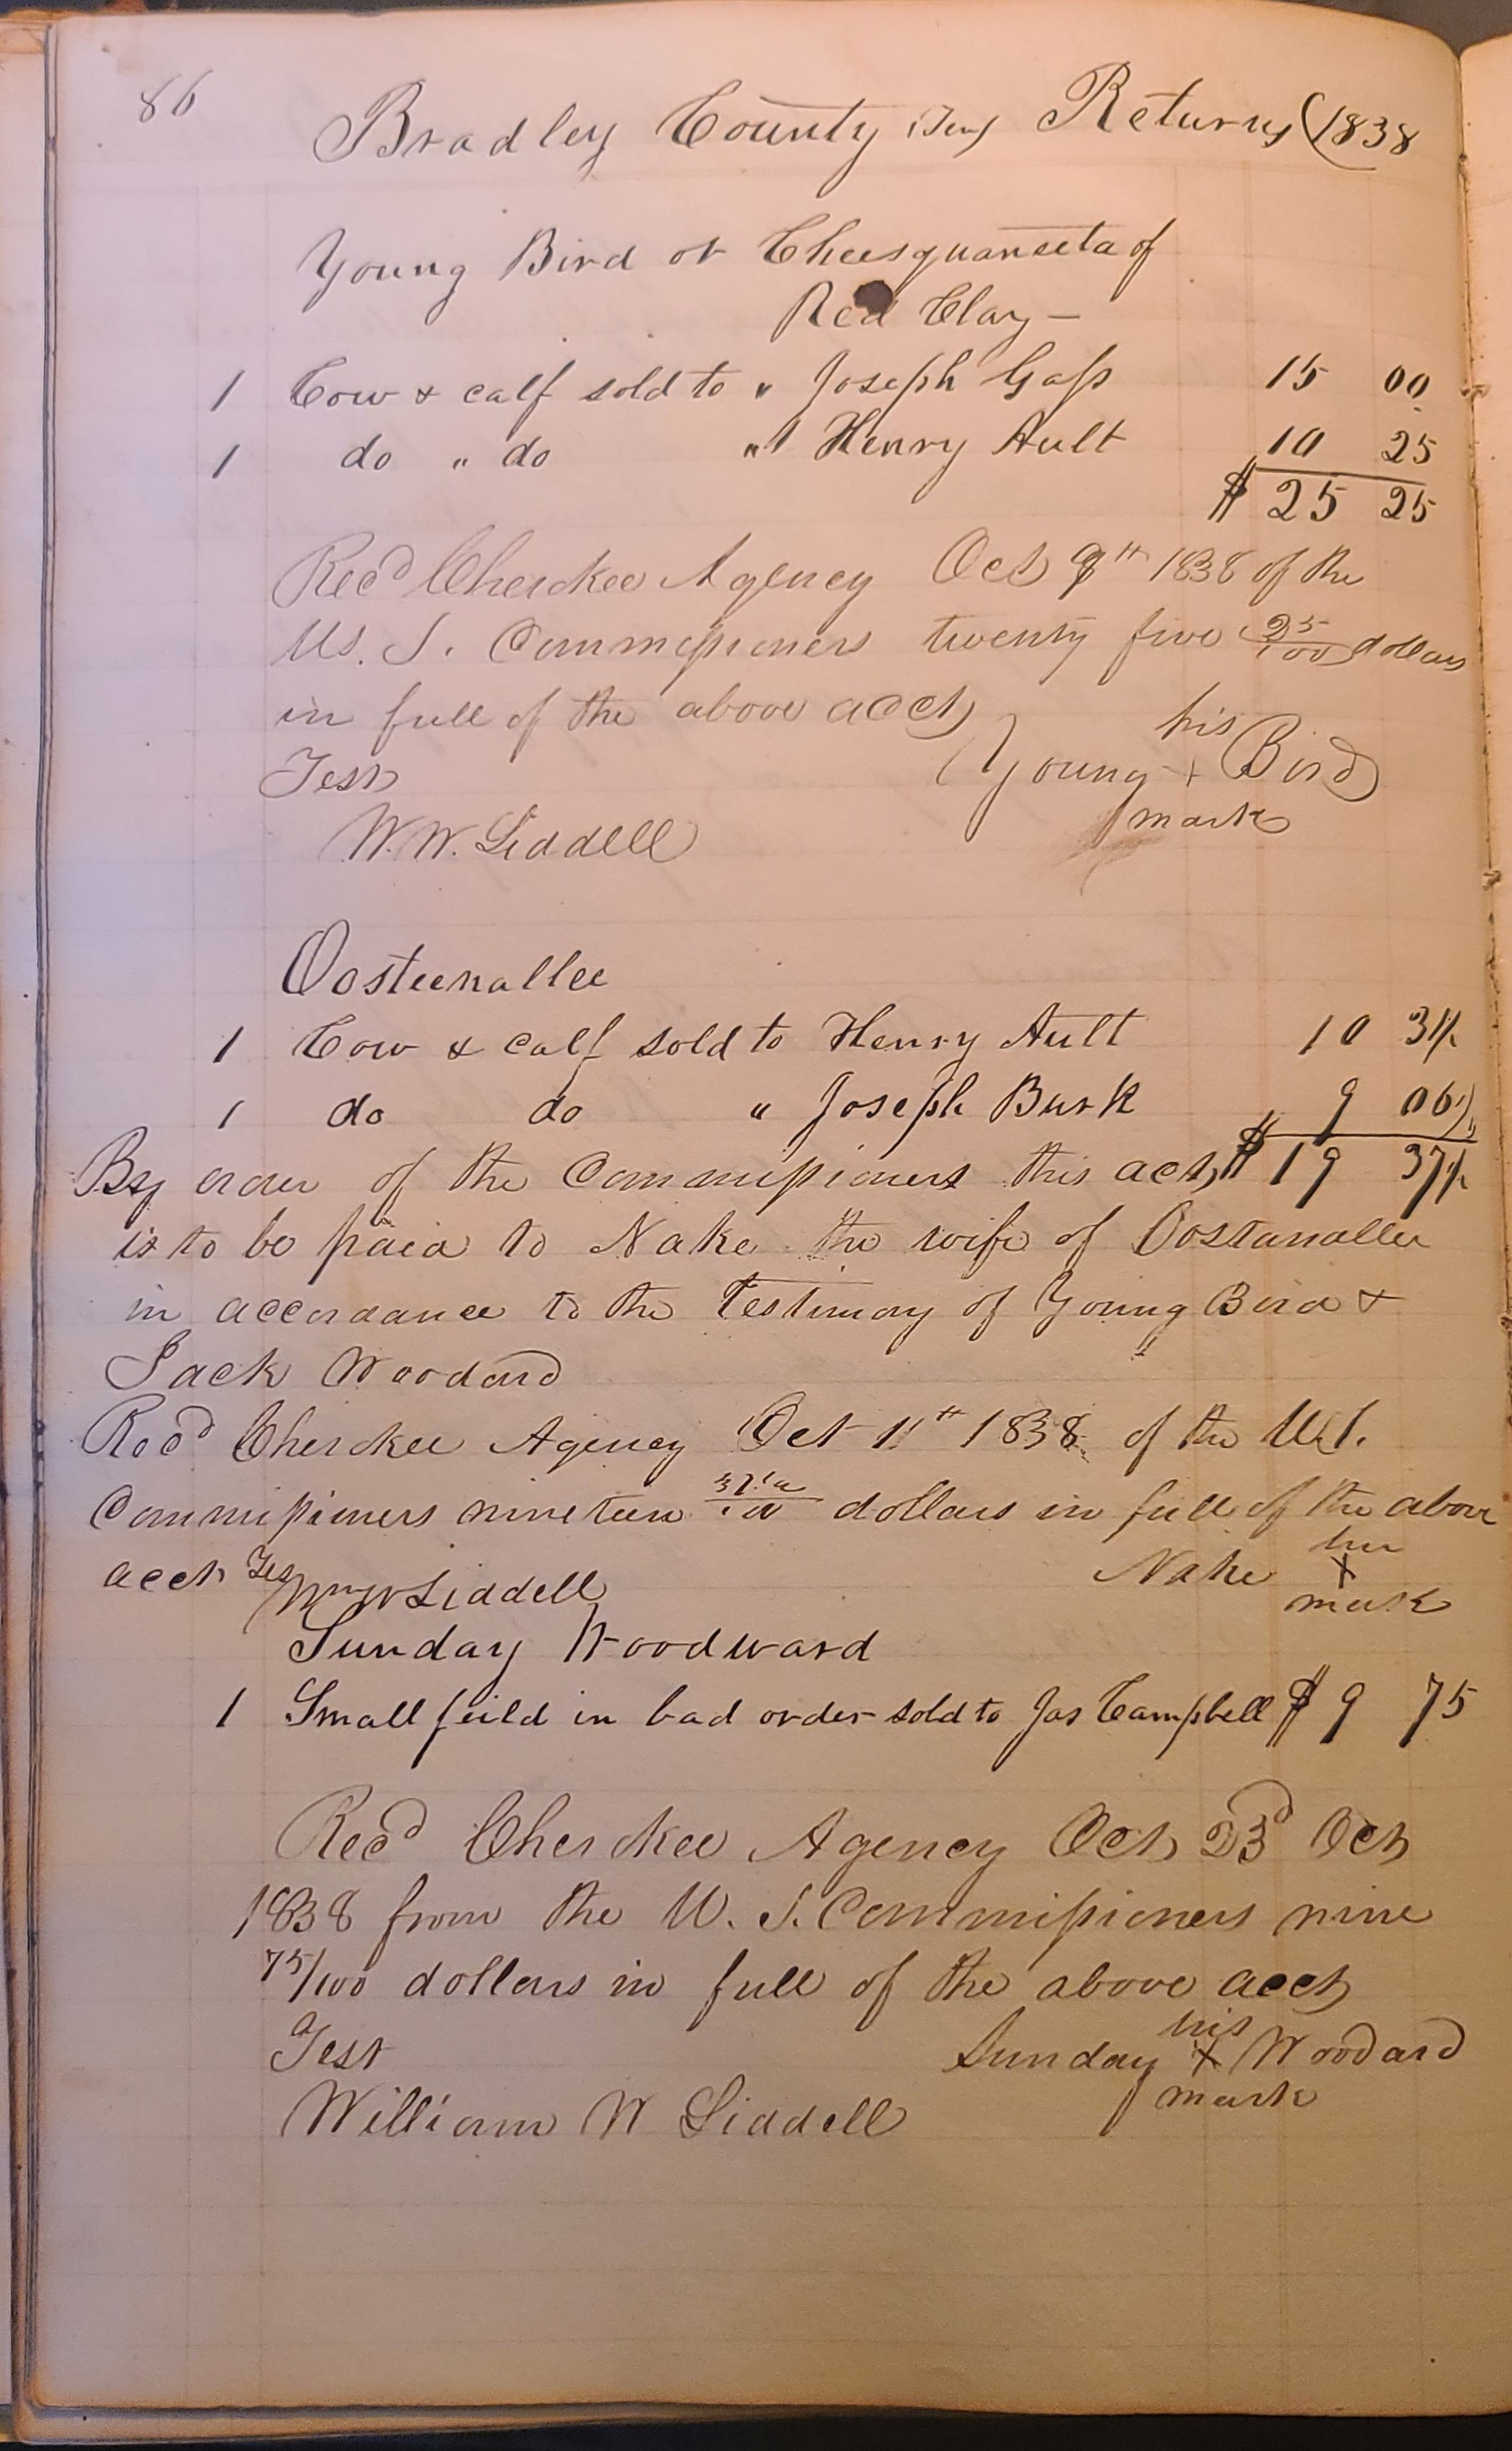 86
Bradley County Ten Returns (1838
Young Bird or Cheesquaneeta of
Red Clay —
1 Cow & calf sold to " Joseph Gass 15 00
1 do " do " Henry Ault 10 25
$ 25 25
Recd Cherokee Agency Oct 9th 1838 of the
U. S. Commissioners twenty five 25/100 dollars
in full of the above acct
his
Test Young + Bird
mark
W. W. Liddell
Oosteenallee
1 Cow & calf sold to Henry Ault 10 31¼
1 do do " Joseph Burk 9 06¼
By order of the Commissioners this acct $ 19 37½
is to be paid to Nake the wife of Oostanallee
in accordance to the Testimony of Young Bird &
Jack Woodard
Recd Cherokee Agency Oct 11th 1838 of the U.S.
Commissioners nineteen 37½/100 dollars in full of the above
her
acct Tes Wm W Liddell Nake +
mark
Sunday Woodward
1 Small feild in bad order sold to Jas Campbell $ 9 75
Recd Cherokee Agency Oct 23d Oct
1838 from the U. S. Commissioners nine
75/100 dollars in full of the above acct
his
Test Sunday + Woodard
mark
William W Liddell